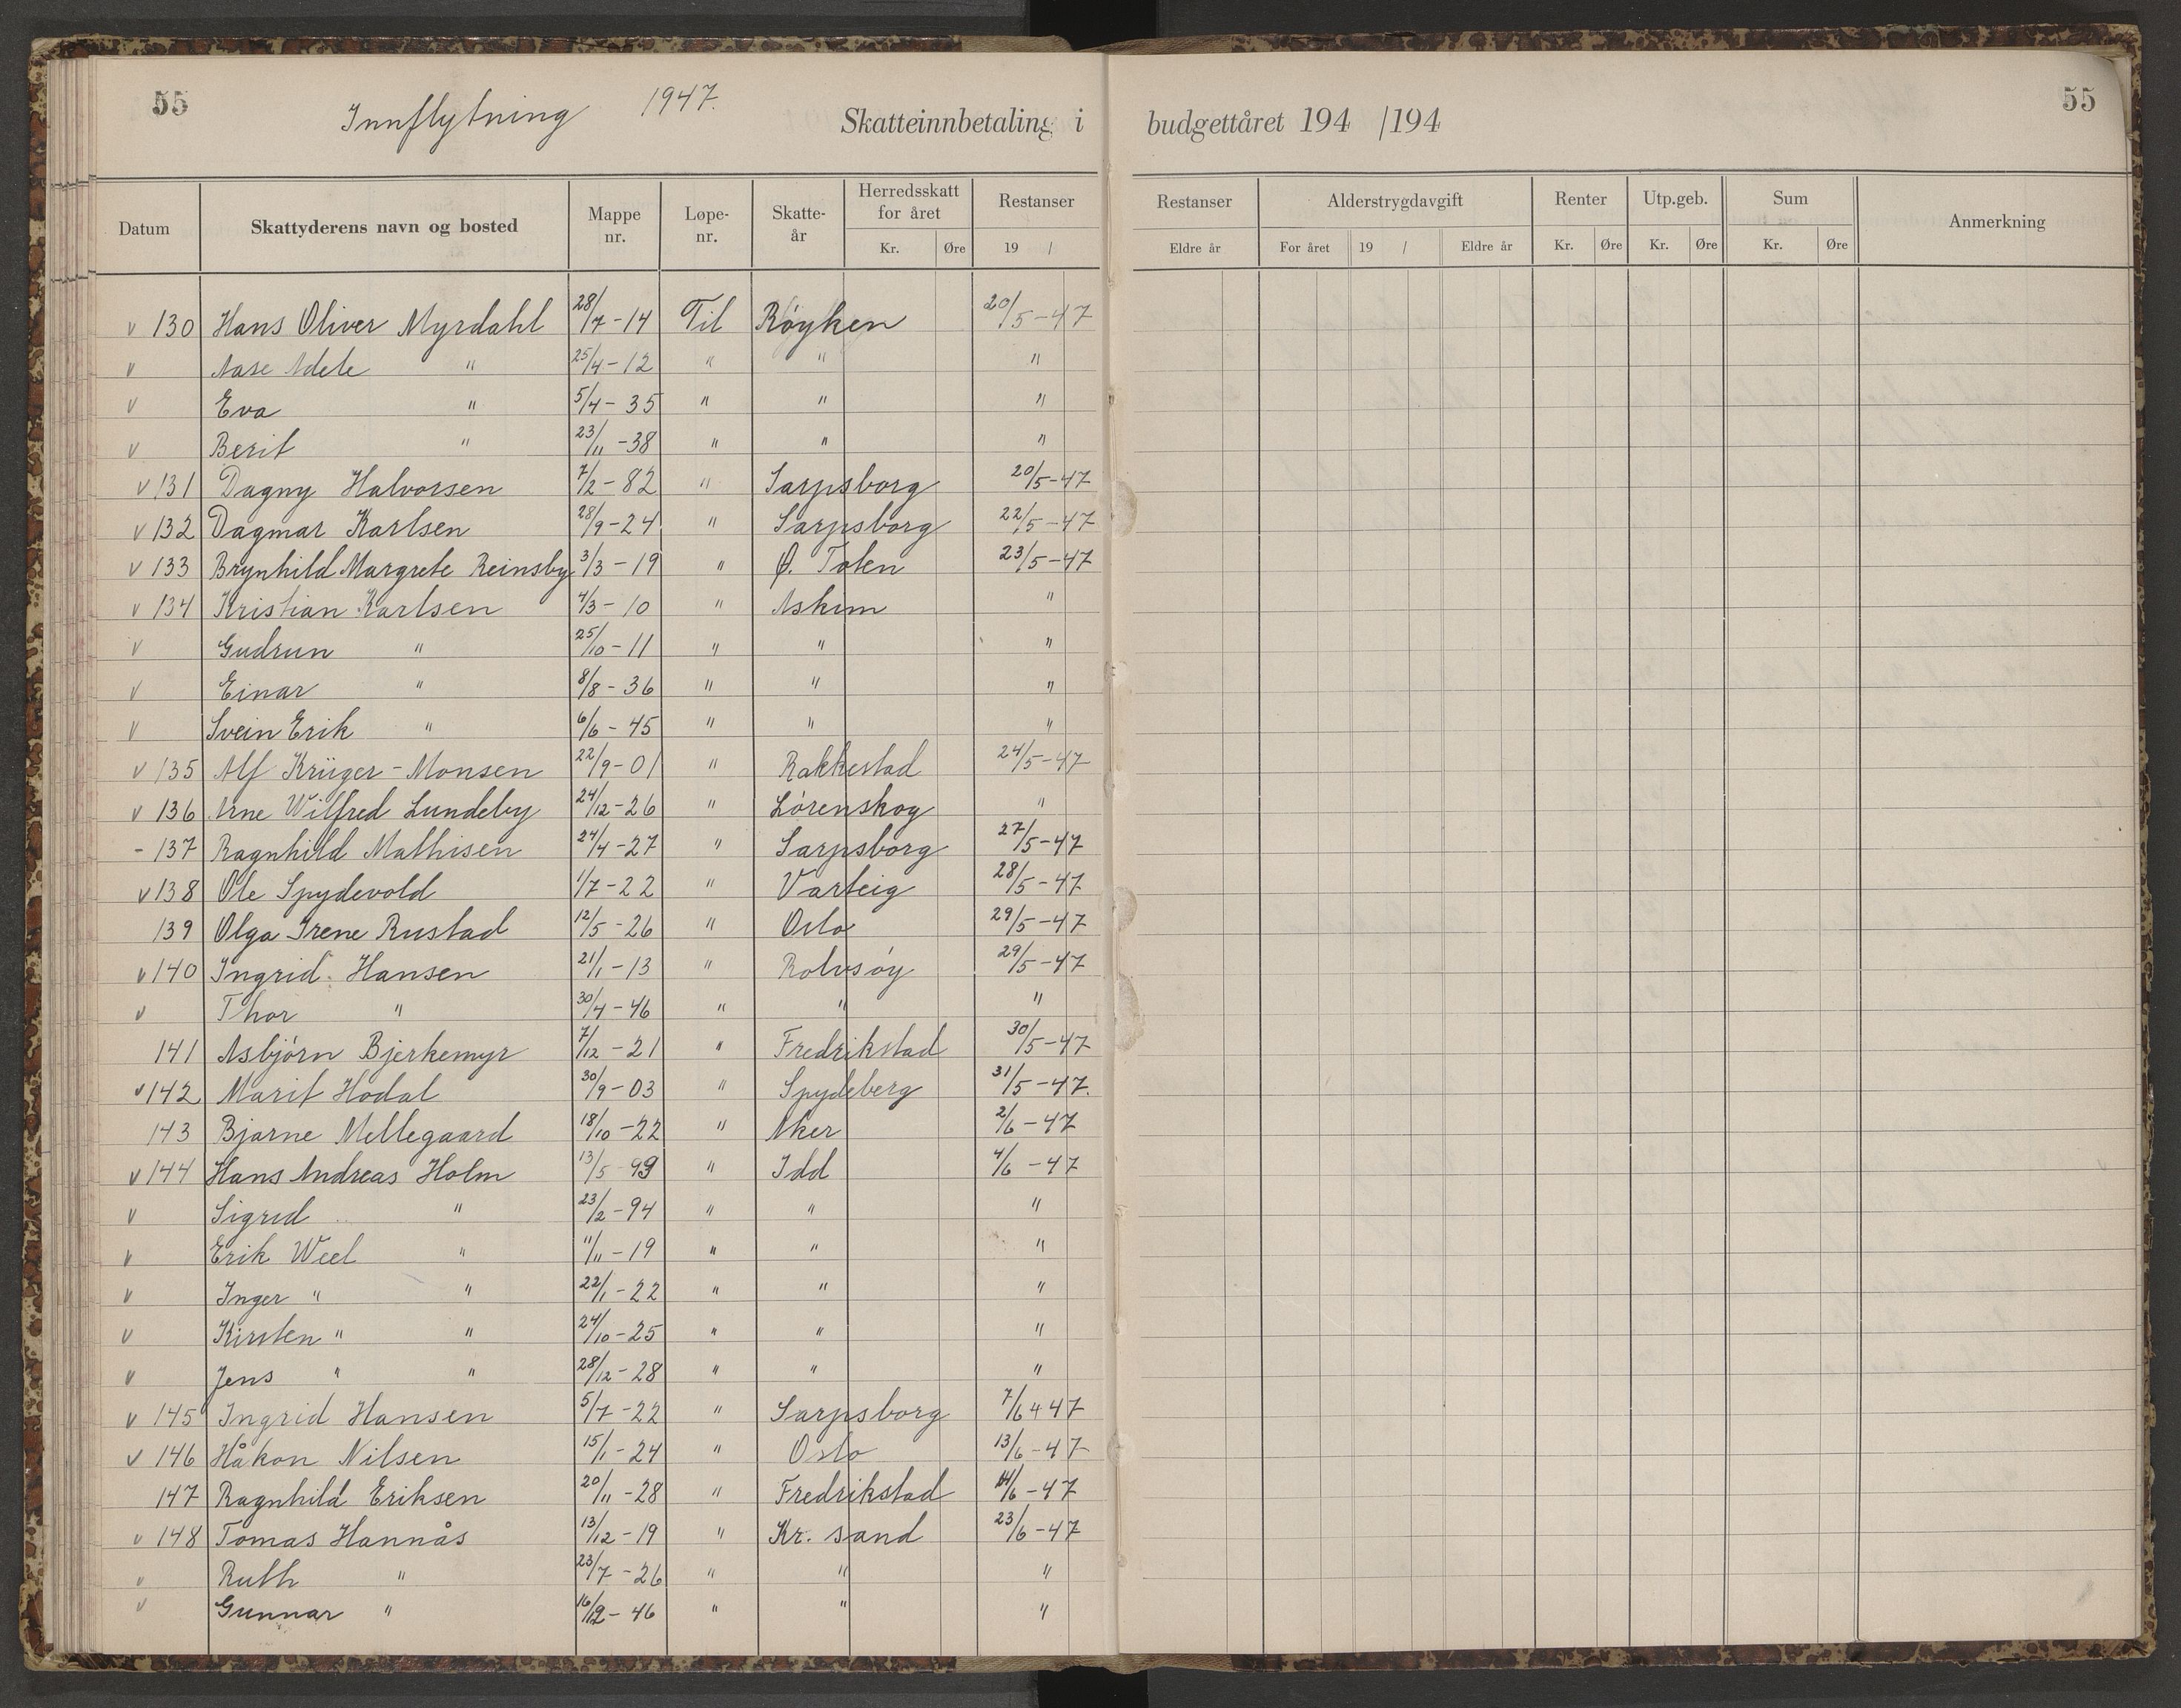 55 Innflytning 1947. Skatteinnbetaling i budgettåret 194 /194 55
Datum Skattyderens navn og bosted Mappe nr. Løpe-nr. Skatte-år Herredsskatt for året Kr. Øre Restanser 19 / Restanser Eldre år Alderstrygdavgift For året 19 / Eldre år Renter Kr. Øre Utp.geb. Kr. Øre Sum Kr. Øre Anmerkning
v 130 Hans Oliver Myrdahl 28/7-14 Til Røyken 20/5-47
v Aase Adele " 25/4-12 " " "
v Eva " 5/4-35 " " "
v Berit " 23/11-38 " " "
v 131 Dagny Halvorsen 7/2-82 " Sarpsborg 20/5-47
v 132 Dagmar Karlsen 28/9-24 " Sarpsborg 22/5-47
v 133 Brynhild Margrete Reinsby 3/3-19 " Ø. Toten 23/5-47
v 134 Kristian Karlsen 4/3-10 " Askim "
v Gudrun " 25/10-11 " " "
v Einar " 8/8-36 " " "
v Svein Erik " 6/6-45 " " "
v 135 Alf Krüger-Monsen 22/9-01 " Rakkestad 24/5-47
v 136 Arne Wilfred Lundeby 24/12-26 " Lørenskog "
- 137 Ragnhild Mathisen 24/4-27 " Sarpsborg 27/5-47
v 138 Ole Spydevold 1/7-22 " Varteig 28/5-47
139 Olga Irene Rustad 12/5-26 " Oslo 29/5-47
v 140 Ingrid Hansen 21/1-13 " Rolvsøy 29/5-47
v Thor " 30/4-46 " " "
141 Asbjørn Bjerkemyr 7/12-21 " Fredrikstad 30/5-47
v 142 Marit Hodal 30/9-03 " Spydeberg 31/5-47.
143 Bjarne Mellegaard 18/10-22 " Aker 2/6-47
v 144 Hans Andreas Holm 13/5-99 " Idd 4/6-47
v Sigrid " 23/2-94 " " "
v Erik Weel " 11/11-19 " " "
v Inger " " 22/1-22 " " "
v Kirsten " " 24/10-25 " " "
v Jens " " 28/12-28 " " "
v 145 Ingrid Hansen 5/7-22 " Sarpsborg 7/6-47
v 146 Håkon Nilsen 15/1-24 " Oslo 13/6-47
147 Ragnhild Eriksen 20/11-28 " Fredrikstad 14/6-47
v 148 Tomas Hannås 13/12-19 " Kr. sand 23/6-47
v Ruth " 23/7-26 " " "
v Gunnar " 16/12-46 " " "